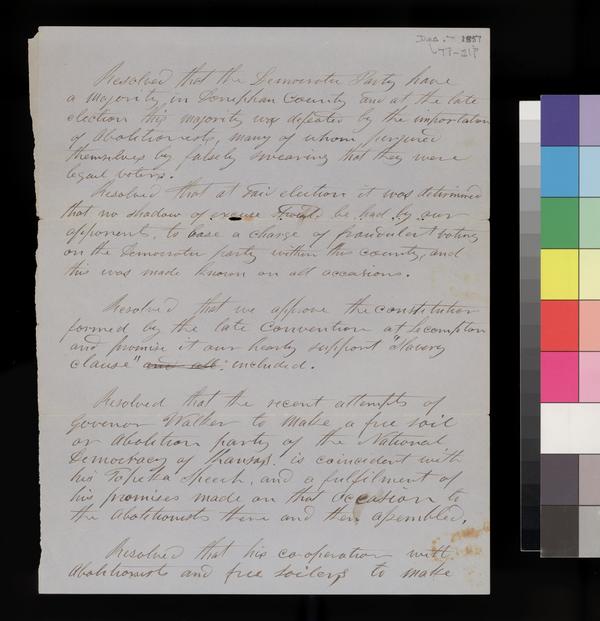 Dec. 1857
Resolved that the Democratic Party have
a majority in Doniphan County and at the late
election this majority was defeated by the importation
of Abolitionists, many of whom perjured
themselves by falsely swearing that they were
legal voters.
Resolved that at said election it was determined
that no shadow of excuse should be had by our
opponents, to base a charge of fraudulent voting
on the Democratic party within this county, and
this was made known on all occasions.
Resolved that we approve the constitution
formed by the late Convention at Lecompton
and promise it our hearty support "Slavery
clause" and all included.
Resolved that the recent attempts of
Governor Walker to make a free soil
or abolition party of the National
Democracy of Kansas. is coincident with
his Topeka speech, and a fulfilment of
his promises made on that occasion to
the Abolitionists there and then assembled.
Resolved that his co-operation with
Abolitionists and free soilers to make